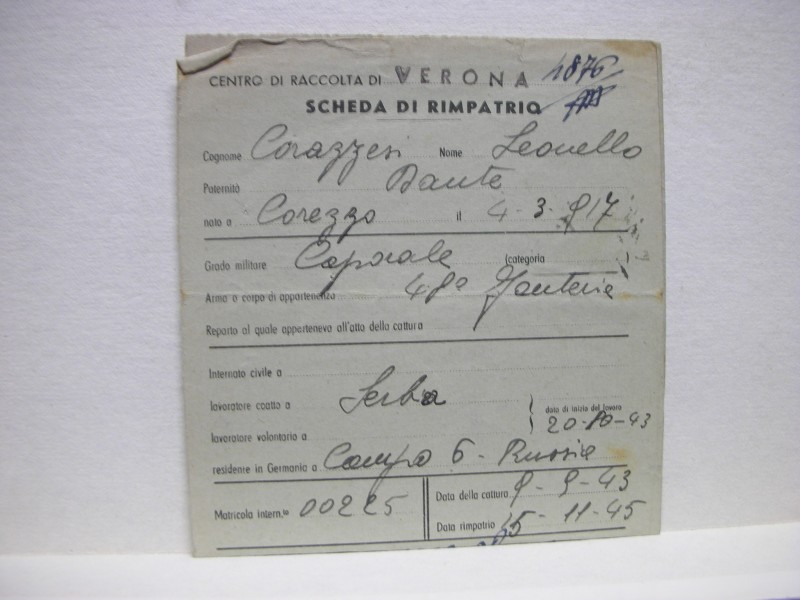 CENTRO DI RACCOLTA DI VERONA 1876
SCHEDA DI RIMPATRIO
Cognome Corazzesi Nome Leonello
Paternità Dante
nato a Corezzo il 4-3-917
Grado militare Caporale (categoria
Arma o corpo di appartenenza 48ª Fanteria
Reparto al quale apparteneva all'atto della cattura
Internato civile a
lavoratore coatto a Serbia data di inizio del lavoro
lavoratore volontario a 20-10-43
residente in Germania a Campo 6 - Russia
Matricola intern.to 00225 Data della cattura 9-9-43
Data rimpatrio 15-11-45